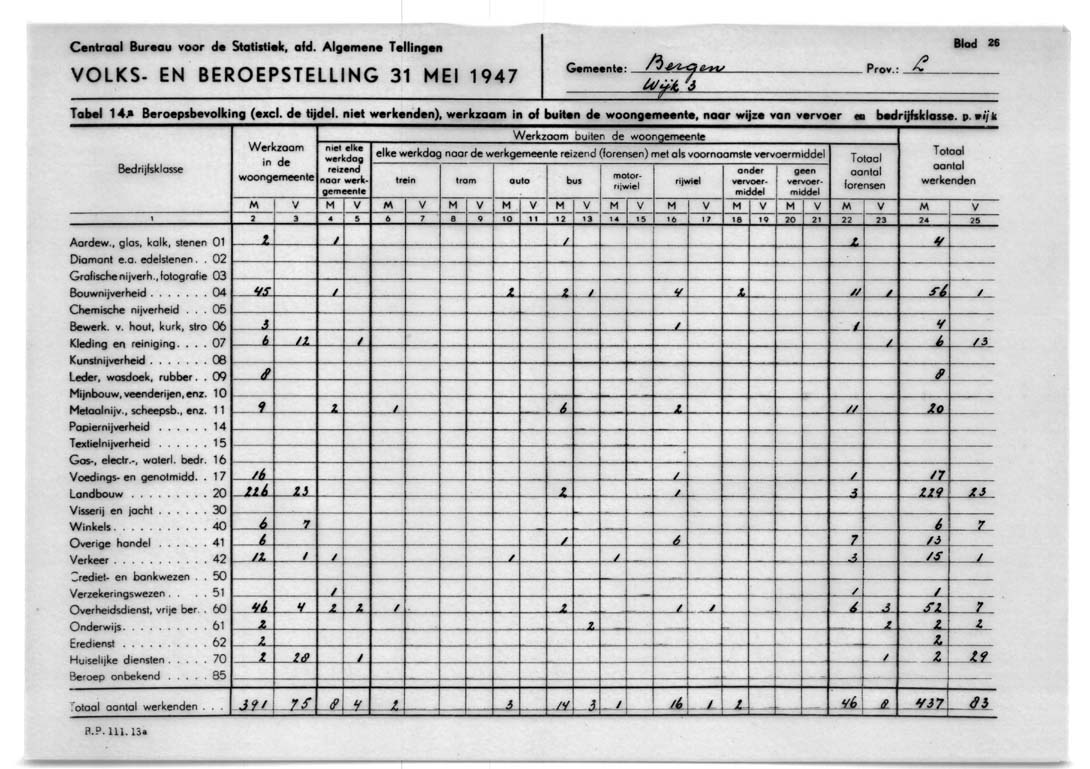 Centraal Bureau voor de Statistiek, afd. Algemene Tellingen
Blad 26
VOLKS- EN BEROEPSTELLING 31 MEI 1947
Gemeente: Bergen Prov.: L
Wijk 3
Tabel 14.a Beroepsbevolking (excl. de tijdel. niet werkenden), werkzaam in of buiten de woongemeente, naar wijze van vervoer en bedrijfsklasse. p. wijk
Bedrijfsklasse
Werkzaam in de woongemeente
Werkzaam buiten de woongemeente
niet elke werkdag reizend naar werkgemeente
elke werkdag naar de werkgemeente reizend (forensen) met als voornaamste vervoermiddel
trein tram auto bus motor-rijwiel rijwiel ander vervoer-middel geen vervoer-middel
Totaal aantal forensen
Totaal aantal werkenden
M V M V M V M V M V M V M V M V M V M V M V M V
1 2 3 4 5 6 7 8 9 10 11 12 13 14 15 16 17 18 19 20 21 22 23 24 25
Aardew., glas, kalk, stenen 01 2 1 1 2 4
Diamant e.a. edelstenen . . 02
Grafische nijverh., fotografie 03
Bouwnijverheid . . . . . . . 04 45 1 2 2 1 4 2 11 1 56 1
Chemische nijverheid . . . 05
Bewerk. v. hout, kurk, stro 06 3 1 1 4
Kleding en reiniging. . . . 07 6 12 1 1 6 13
Kunstnijverheid . . . . . . . 08
Leder, wasdoek, rubber. . 09 8 8
Mijnbouw, veenderijen, enz. 10
Metaalnijv., scheepsb., enz. 11 9 2 1 6 2 11 20
Papiernijverheid . . . . . . 14
Textielnijverheid . . . . . . 15
Gas-, electr.-, waterl. bedr. 16
Voedings- en genotmidd. . 17 16 1 1 17
Landbouw . . . . . . . . . 20 226 23 2 1 3 229 23
Visserij en jacht . . . . . . 30
Winkels. . . . . . . . . . . 40 6 7 6 7
Overige handel . . . . . . 41 6 1 6 7 13
Verkeer . . . . . . . . . . . 42 12 1 1 1 1 3 15 1
Crediet- en bankwezen . . 50
Verzekeringswezen. . . . . 51 1 1 1
Overheidsdienst, vrije ber. . 60 46 4 2 2 1 2 1 1 6 3 52 7
Onderwijs. . . . . . . . . . 61 2 2 2 2 2
Eredienst . . . . . . . . . . 62 2 2
Huiselijke diensten . . . . . 70 2 28 1 1 2 29
Beroep onbekend . . . . . 85
Totaal aantal werkenden . . . 391 75 8 4 2 3 14 3 1 16 1 2 46 8 437 83
R.P. 111. 13a